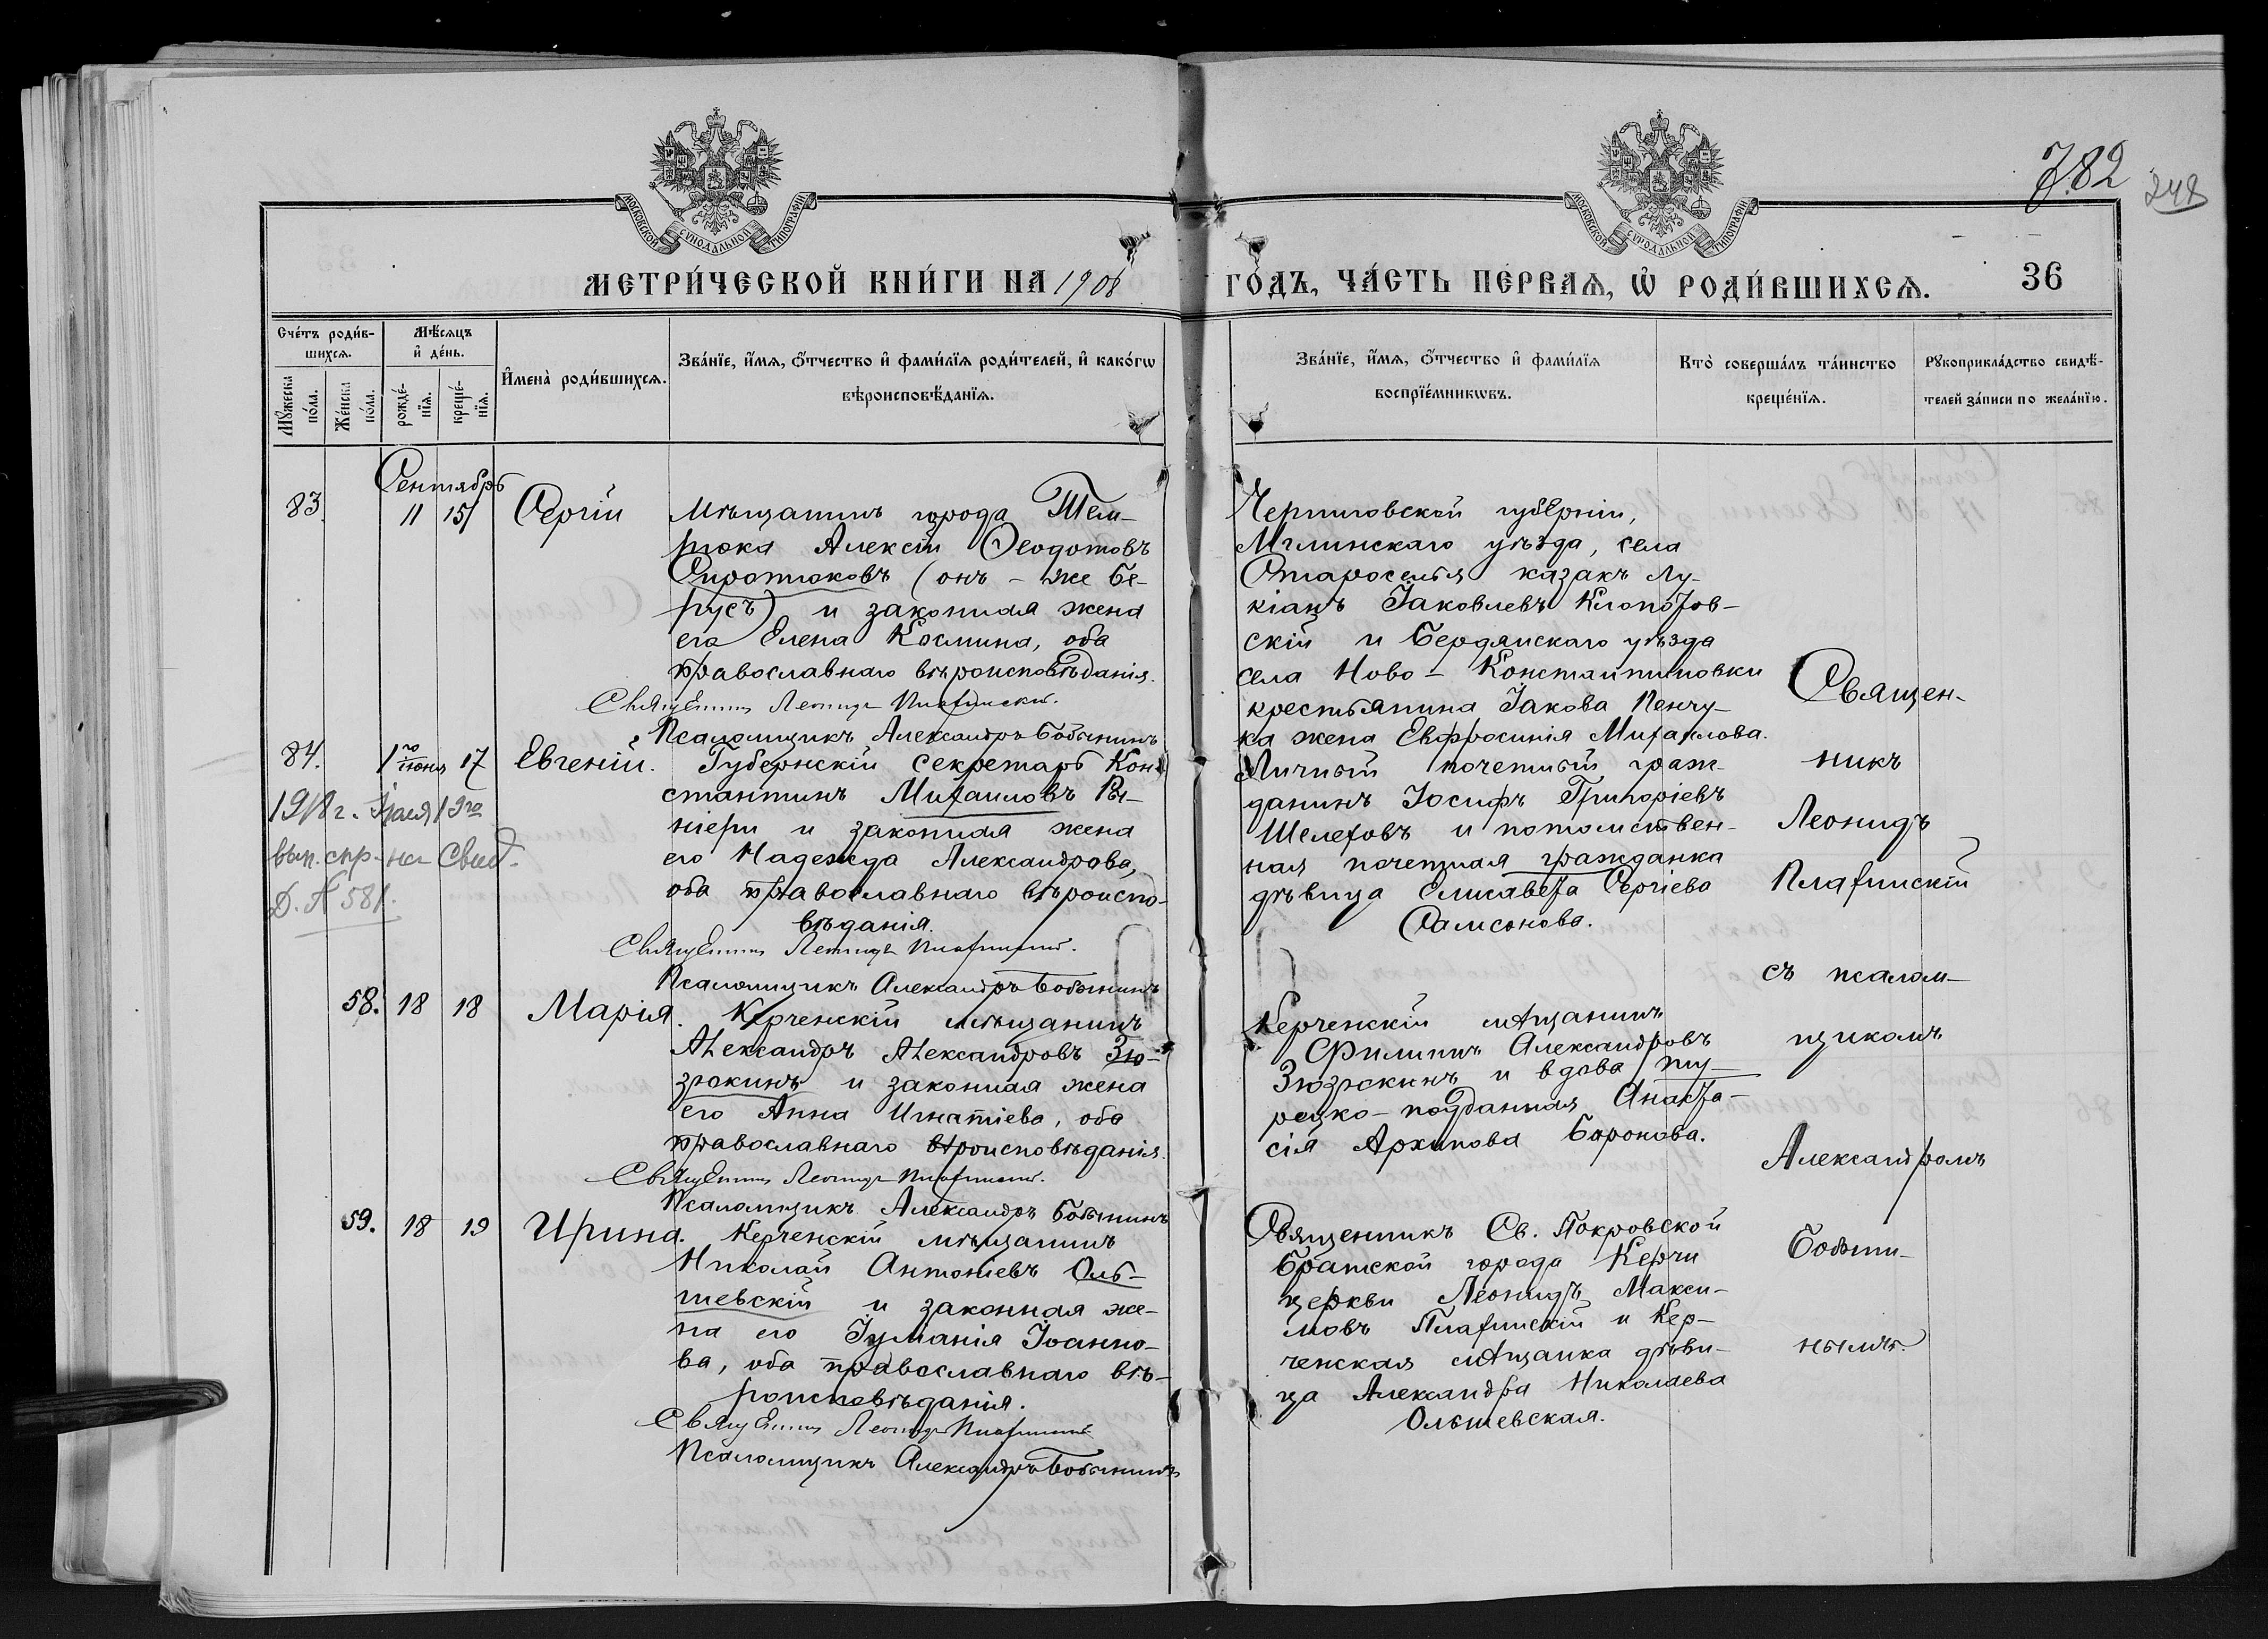 782
248
МОСКОВСКОЙ СУНОДАЛЬНОЙ ТИПОГРАФІИ
МОСКОВСКОЙ СУНОДАЛЬНОЙ ТИПОГРАФІИ
МЕТРИ́ЧЕСКОЙ КНИ́ГИ НА 1908 ГО́ДЪ, ЧА́СТЬ ПЕ́РВАѦ, Ѡ҆ РОДИ́ВШИХСѦ. 36
Сче́тъ роди́в-
шихсѧ.
Мꙋ́жеска по́ла.
Же́нска по́ла.
Мѣ́сѧцъ
и҆ де́нь.
рожде́-
нїѧ.
креще́-
нїѧ.
И҆мена̀ роди́вшихсѧ.
Зва́нїе, и҆́мѧ, ѻ҆́тчество и҆ фами́лїѧ роди́телей, и҆ како́гѡ
вѣроисповѣ́данїѧ.
Зва́нїе, и҆́мѧ, ѻ҆́тчество и҆ фами́лїѧ
воспрїе́мникѡвъ.
Кто̀ соверша́лъ та́инство
креще́нїѧ.
Рꙋкоприкла́дство свидѣ́-
телей за́писи по жела́нїю.
Сентябрь
83. 11 15 Сергій
Мѣщанинъ города Тем-
рюка Алексій Ѳеодотовъ
Сиротюковъ (онъ-же Бе-
русъ) и законная жена
его Елена Космина, оба
православнаго вѣроисповѣданія.
Священникъ Леонидъ Плафинскій.
Псаломщикъ Александръ Бобынинъ
Черниговской губерніи,
Мглинскаго уѣзда, села
Староселья казакъ Лу-
кіанъ Іаковлевъ Клопотов-
скій и Бердянскаго уѣзда
села Ново-Константиновки
крестьянина Іакова Пенчу-
ка жена Евфросинія Михаилова.
84. 1го іюня 17 Евгеній.
1918 г. Мая 19го
вып. спр. на свид.
Д. № 581.
Губернскій секретарь Кон-
стантинъ Михаиловъ Ры-
ніери и законная жена
его Надежда Александрова,
оба православнаго вѣроиспо-
вѣданія.
Священникъ Леонидъ Плафинскій.
Псаломщикъ Александръ Бобынинъ
Личный почетный граж-
данинъ Іосифъ Григоріевъ
Шелеховъ и потомствен-
ная почетная гражданка
дѣвица Елисавета Сергіева
Самсонова.
58. 18 18 Марія.
Керченскій мѣщанинъ
Александръ Александровъ Зю-
зрюкинъ и законная жена
его Анна Игнатіева, оба
православнаго вѣроисповѣданія.
Священникъ Леонидъ Плафинскій.
Псаломщикъ Александръ Бобынинъ
Керченскій мѣщанинъ
Филиппъ Александровъ
Зюзрюкинъ и вдова ту-
рецко-подданная Анаста-
сія Архипова Боронова.
59. 18 19 Ирина.
Керченскій мѣщанинъ
Николай Антоніевъ Оль-
шевскій и законная же-
на его Іуліанія Іоанно-
ва, оба православнаго вѣ-
роисповѣданія.
Священникъ Леонидъ Плафинскій
Псаломщикъ Александръ Бобынинъ
Священникъ Св. Покровской
Братской города Керчи
церкви Леонидъ Макси-
мовъ Плафинскій и Кер-
ченская мѣщанка дѣви-
ца Александра Николаева
Ольшевская.
Священ-
никъ
Леонидъ
Плафинскій
съ псалом-
щикомъ
Александромъ
Бобыни-
нымъ.